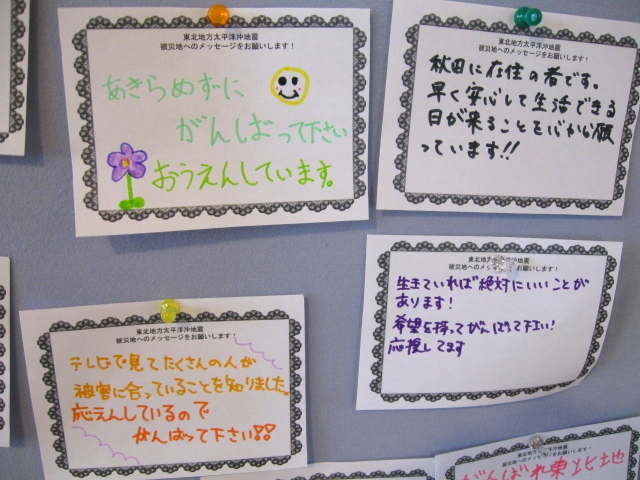 東北地方太平洋沖地震
被災地へのメッセージをお願いします!
あきらめずに
がんばって下さい
おうえんしています。
東北地方太平洋沖地震
被災地へのメッセージをお願いします!
秋田に在住の者です。
早く安心して生活できる
日が来ることを心から願
っています!!
東北地方太平洋沖地震
被災地へのメッセージをお願いします!
テレビで見てたくさんの人が
被害に合っていることを知りました。
応えんしているので
がんばって下さい!!
東北地方太平洋沖地震
被災地へのメッセージをお願いします!
生きていれば絶対にいいことが
あります!
希望を持ってがんばって下さい!
応援してます
東北地方太平洋沖地震
被災地へのメッセージをお願いします!
がんばれ東北地